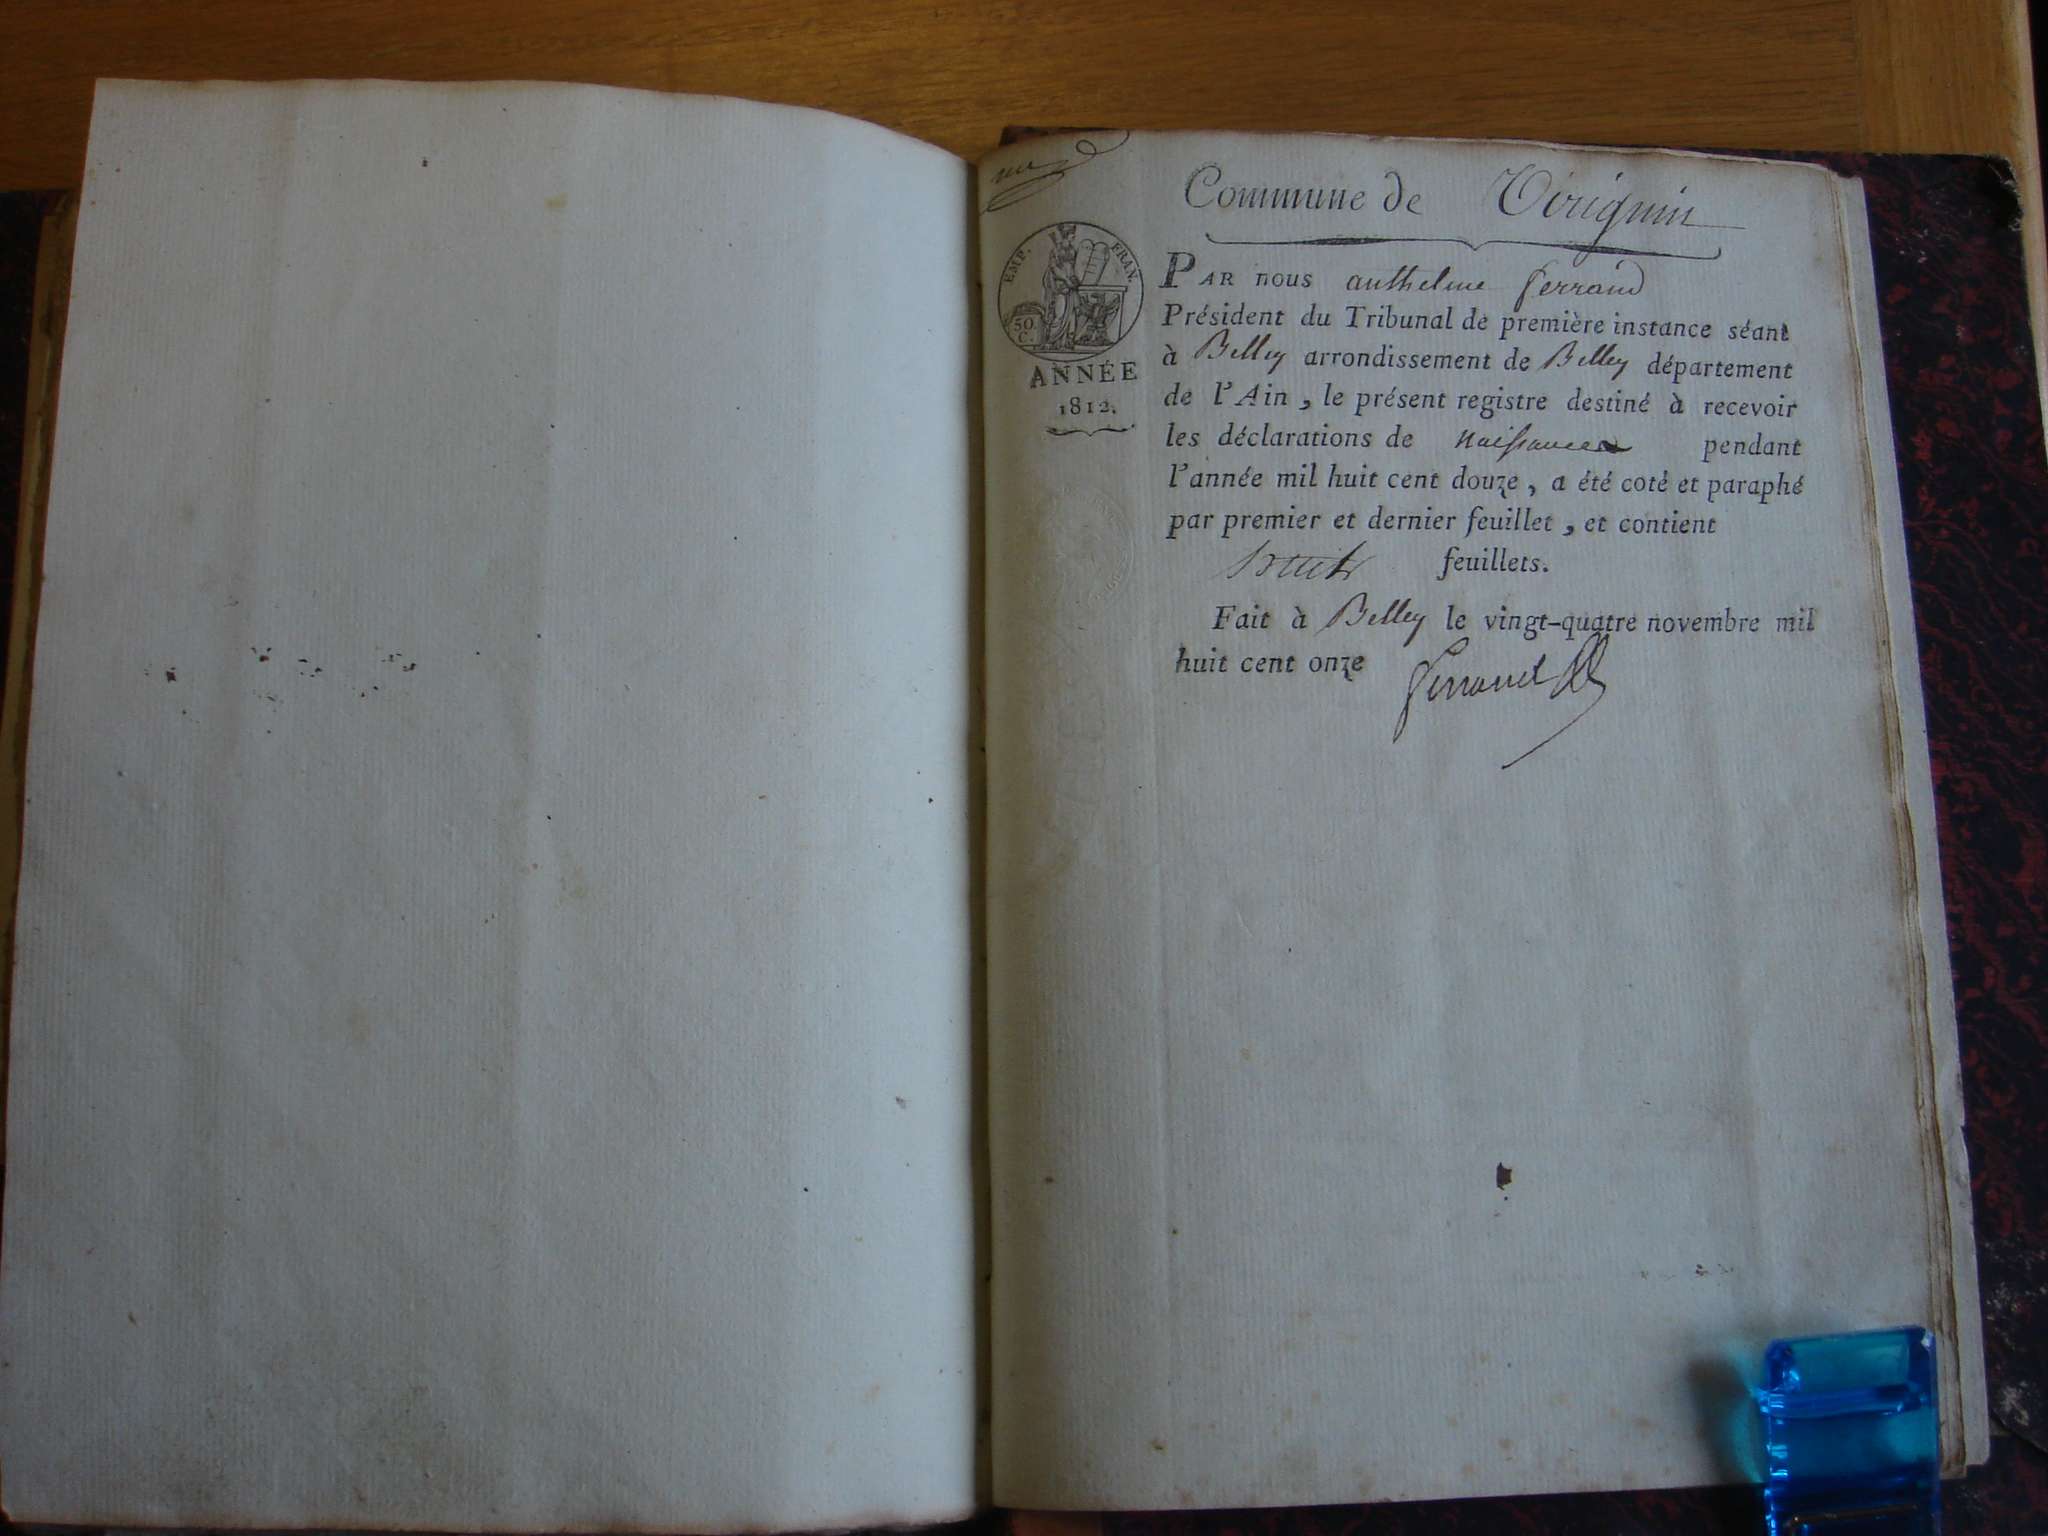 Commune de Virignin
EMP. FRAN.
50
C.
ANNÉE
1812.
PAR nous anthelme ferrand
Président du Tribunal de première instance séant
à Belley arrondissement de Belley département
de l'Ain, le présent registre destiné à recevoir
les déclarations de naissances pendant
l'année mil huit cent douze, a été coté et paraphé
par premier et dernier feuillet, et contient
huit feuillets.
Fait à Belley le vingt-quatre novembre mil
huit cent onze
ferrand